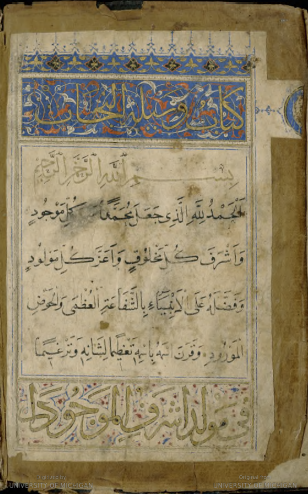 كتاب وسيلة
بسم الله الرحمن الرحيم
الحمد لله الذي جعل محمدا كل موجود
وأشرف كل مخلوق وأعز كل مولود
وفضله على الأنبياء بالشفاعة العظمى والحوض
المورود وقرن اسمه باسمه تعظيما لشانه وترغيما
في مولد اشرف الموجودات
Original from
UNIVERSITY OF MICHIGAN